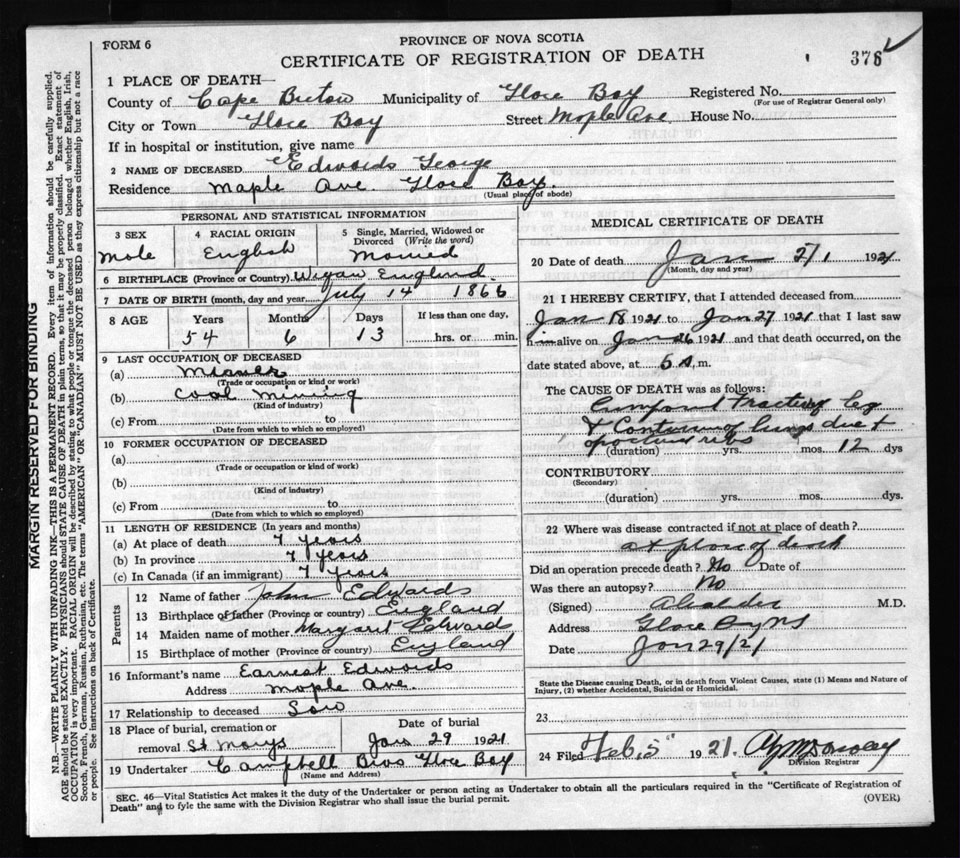 FORM 6
PROVINCE OF NOVA SCOTIA
CERTIFICATE OF REGISTRATION OF DEATH
376
1 PLACE OF DEATH—
County of Cape Breton Municipality of Glace Bay Registered No.
(For use of Registrar General only)
City or Town Glace Bay Street Maple Ave House No.
If in hospital or institution, give name
2 NAME OF DECEASED Edwards George
Residence Maple Ave. Glace Bay.
(Usual place of abode)
PERSONAL AND STATISTICAL INFORMATION
3 SEX
Male
4 RACIAL ORIGIN
English
5 Single, Married, Widowed or
Divorced (Write the word)
Married
6 BIRTHPLACE (Province or Country) Wigan England
7 DATE OF BIRTH (month, day and year July 14 1866
8 AGE Years Months Days If less than one day,
54 6 13 hrs. or min.
9 LAST OCCUPATION OF DECEASED
(a) Miner
(Trade or occupation or kind or work)
(b) Coal Mining
(Kind of industry)
(c) From to
(Date from which to which so employed)
10 FORMER OCCUPATION OF DECEASED
(a)
(Trade or occupation or kind of work)
(b)
(Kind of industry)
(c) From to
(Date from which to which so employed)
11 LENGTH OF RESIDENCE (In years and months)
(a) At place of death 7 years
(b) In province 7 years
(c) In Canada (if an immigrant) 7 years
Parents
12 Name of father John Edwards
13 Birthplace of father (Province or country) England
14 Maiden name of mother Margaret Edwards
15 Birthplace of mother (Province or country) England
16 Informant's name Earnest Edwards
Address Maple Ave.
17 Relationship to deceased Son
18 Place of burial, cremation or Date of burial
removal St Marys Jan 29 1921
19 Undertaker Campbell Bros Glace Bay
(Name and Address)
MEDICAL CERTIFICATE OF DEATH
20 Date of death Jan 1921
(Month, day and year)
21 I HEREBY CERTIFY, that I attended deceased from
Jan 18 1921 to Jan 27 1921 that I last saw
him alive on Jan 26 1921 and that death occurred, on the
date stated above, at 5 a.m.
The CAUSE OF DEATH was as follows:
Compound Fracture leg
+ Contusion of lungs due to
fractured ribs
(duration) yrs. mos. 12 dys
CONTRIBUTORY
(Secondary)
(duration) yrs. mos. dys.
22 Where was disease contracted if not at place of death?
at place of death
Did an operation precede death? No Date of
Was there an autopsy? No
(Signed) M.D.
Address Glace Bay NS
Date Jan 29/21
State the Disease causing Death, or in death from Violent Causes, state (1) Means and Nature of
Injury, (2) whether Accidental, Suicidal or Homicidal.
23
24 Filed Feb. 5" 1921.
Division Registrar
SEC. 46—Vital Statistics Act makes it the duty of the Undertaker or person acting as Undertaker to obtain all the particulars required in the "Certificate of Registration of
Death" and to fyle the same with the Division Registrar who shall issue the burial permit.
(OVER)
MARGIN RESERVED FOR BINDING
N.B.—WRITE PLAINLY WITH UNFADING INK—THIS IS A PERMANENT RECORD. Every item of information should be carefully supplied.
AGE should be stated EXACTLY. PHYSICIANS should STATE CAUSE OF DEATH in plain terms, so that it may be properly classified. Exact statement of
OCCUPATION is very important. RACIAL ORIGIN will be described by stating to what people or tongue the deceased person belonged, whether English, Irish,
Scotch, French, German, Russian, Ruthenian, etc. The terms "AMERICAN" OR "CANADIAN" MUST NOT BE USED as they express citizenship but not a race
or people. See instructions on back of Certificate.